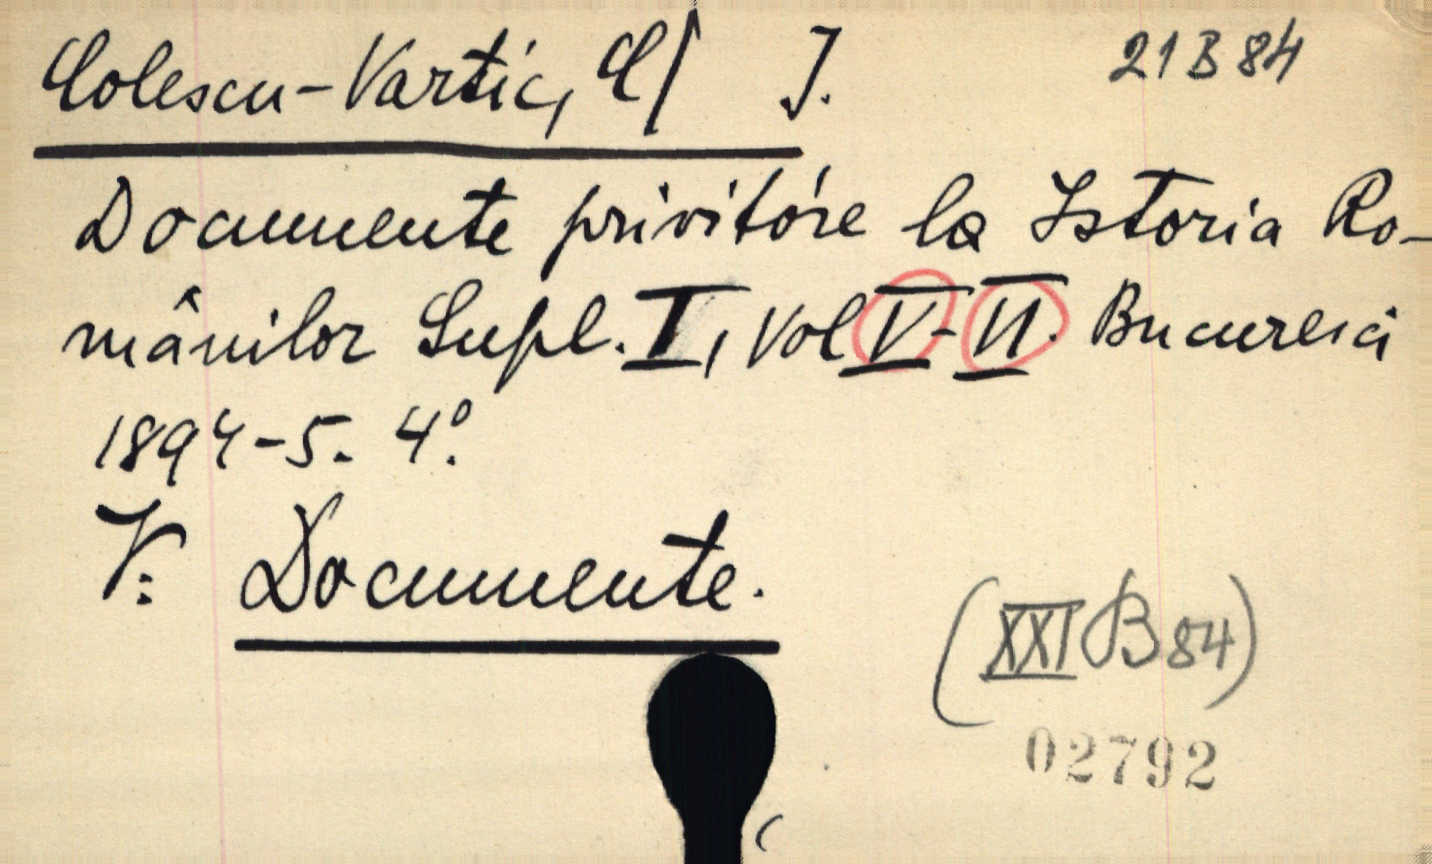 Colescu-Vartic, C/ J. 21 B 84
Documente privitóre la Istoria Ro-
mânilor Supl. I, Vol V-VI. Bucuresci
1894-5. 4º.
V: Documente.
(XXI B 84)
02792